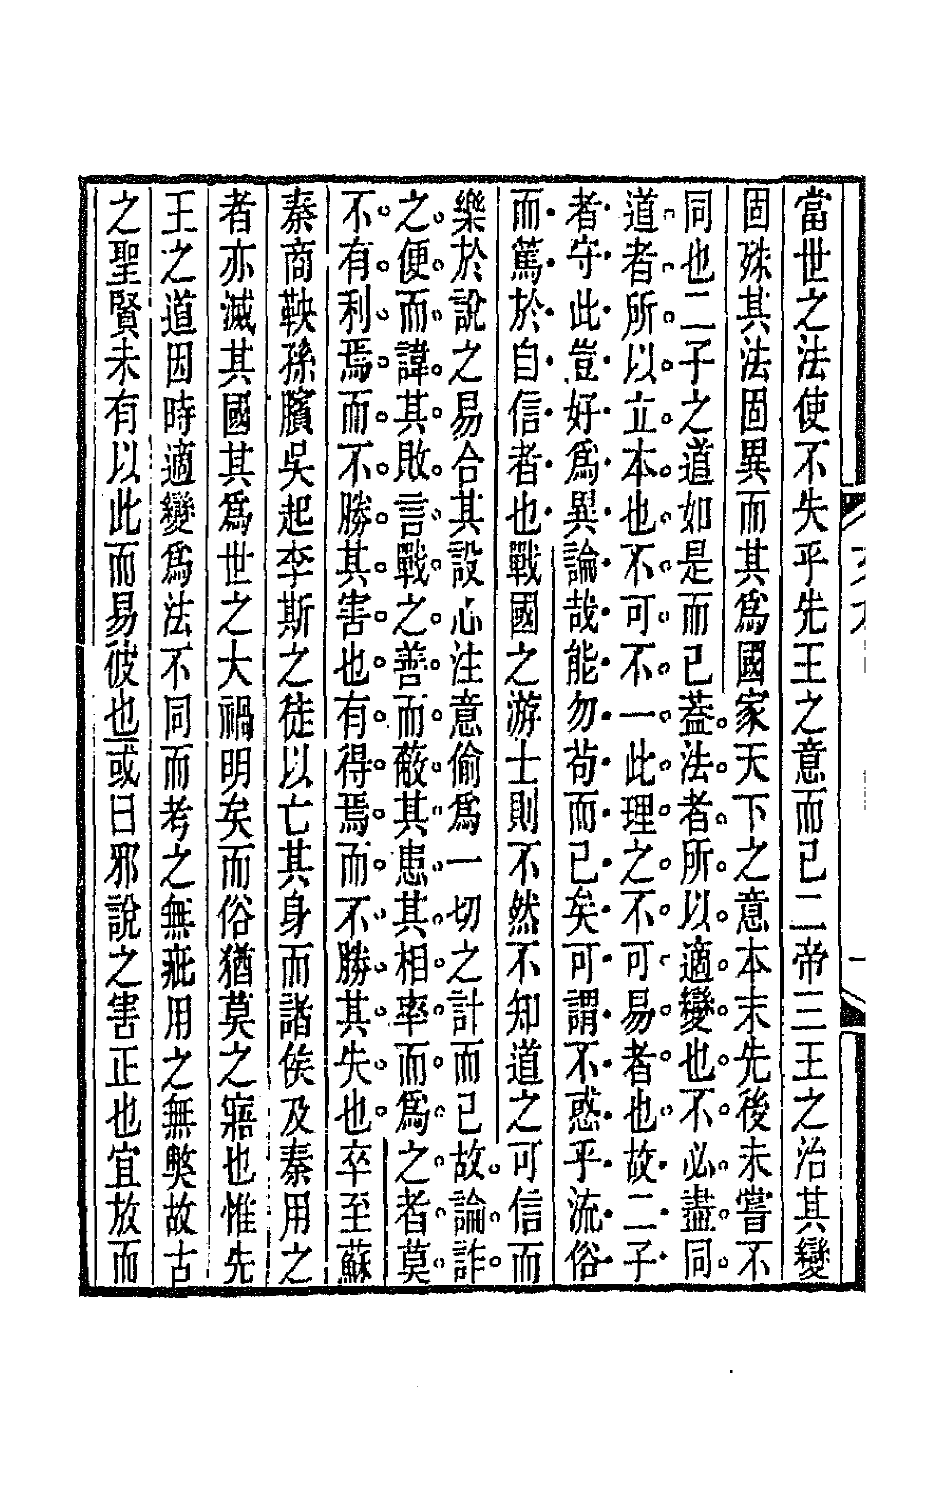 當世之法使不失乎先王之意而已二帝三王之治其變
固殊其法固異而其爲國家天下之意本末先後未嘗不
同也二子之道如是而已葢法者所以適變也不必盡同
道者所以立本也不可不一此理之不可易者也故二子
者守此豈好爲異論哉能勿苟而已矣可謂不惑乎流俗
而篤於自信者也戰國之游士則不然不知道之可信而
樂於說之易合其設心注意偷爲一切之計而已故論詐
之便而諱其敗言戰之善而蔽其患其相率而爲之者莫
不有利焉而不勝其害也有得焉而不勝其失也卒至蘇
秦商鞅孫臏吳起李斯之徒以亡其身而諸侯及秦用之
者亦滅其國其爲世之大禍明矣而俗猶莫之寤也惟先
王之道因時適變爲法不同而考之無疵用之無獘故古
之聖賢未有以此而易彼也或曰邪說之害正也宜放而